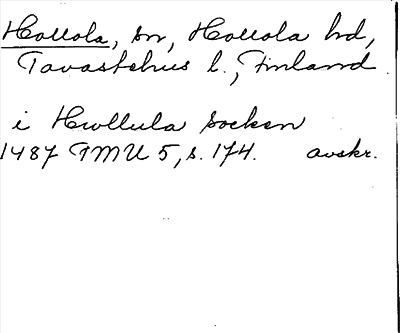 Hollola, sn, Hollola hd,
Tavastehus l., Finland
i Hwllula socken
1487 FMU 5, s. 174. avskr.